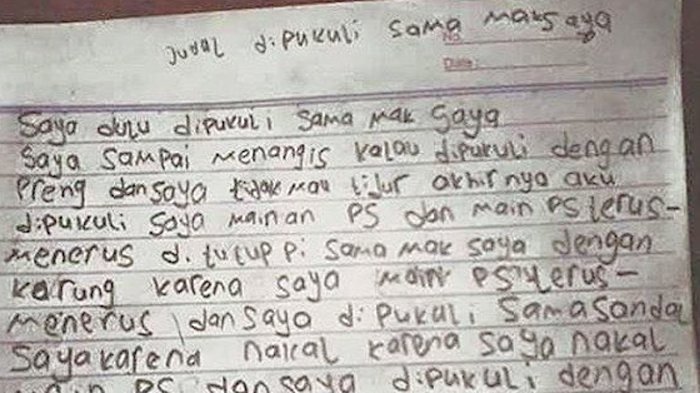 Judal dipukuli sama mak saya
No.
Date :
Saya dulu dipukuli sama mak saya
saya sampai menangis kalau dipukuli dengan
Preng dan saya tidak mau tidur akhirnya aku
dipukuli saya mainan PS dan main PS terus-
menerus di tutup pi sama mak saya dengan
karung karena saya main PS terus-
menerus dan saya dipukuli sama sandal
saya karena nakal karena saya nakal
main PS dan saya dipukuli dengan